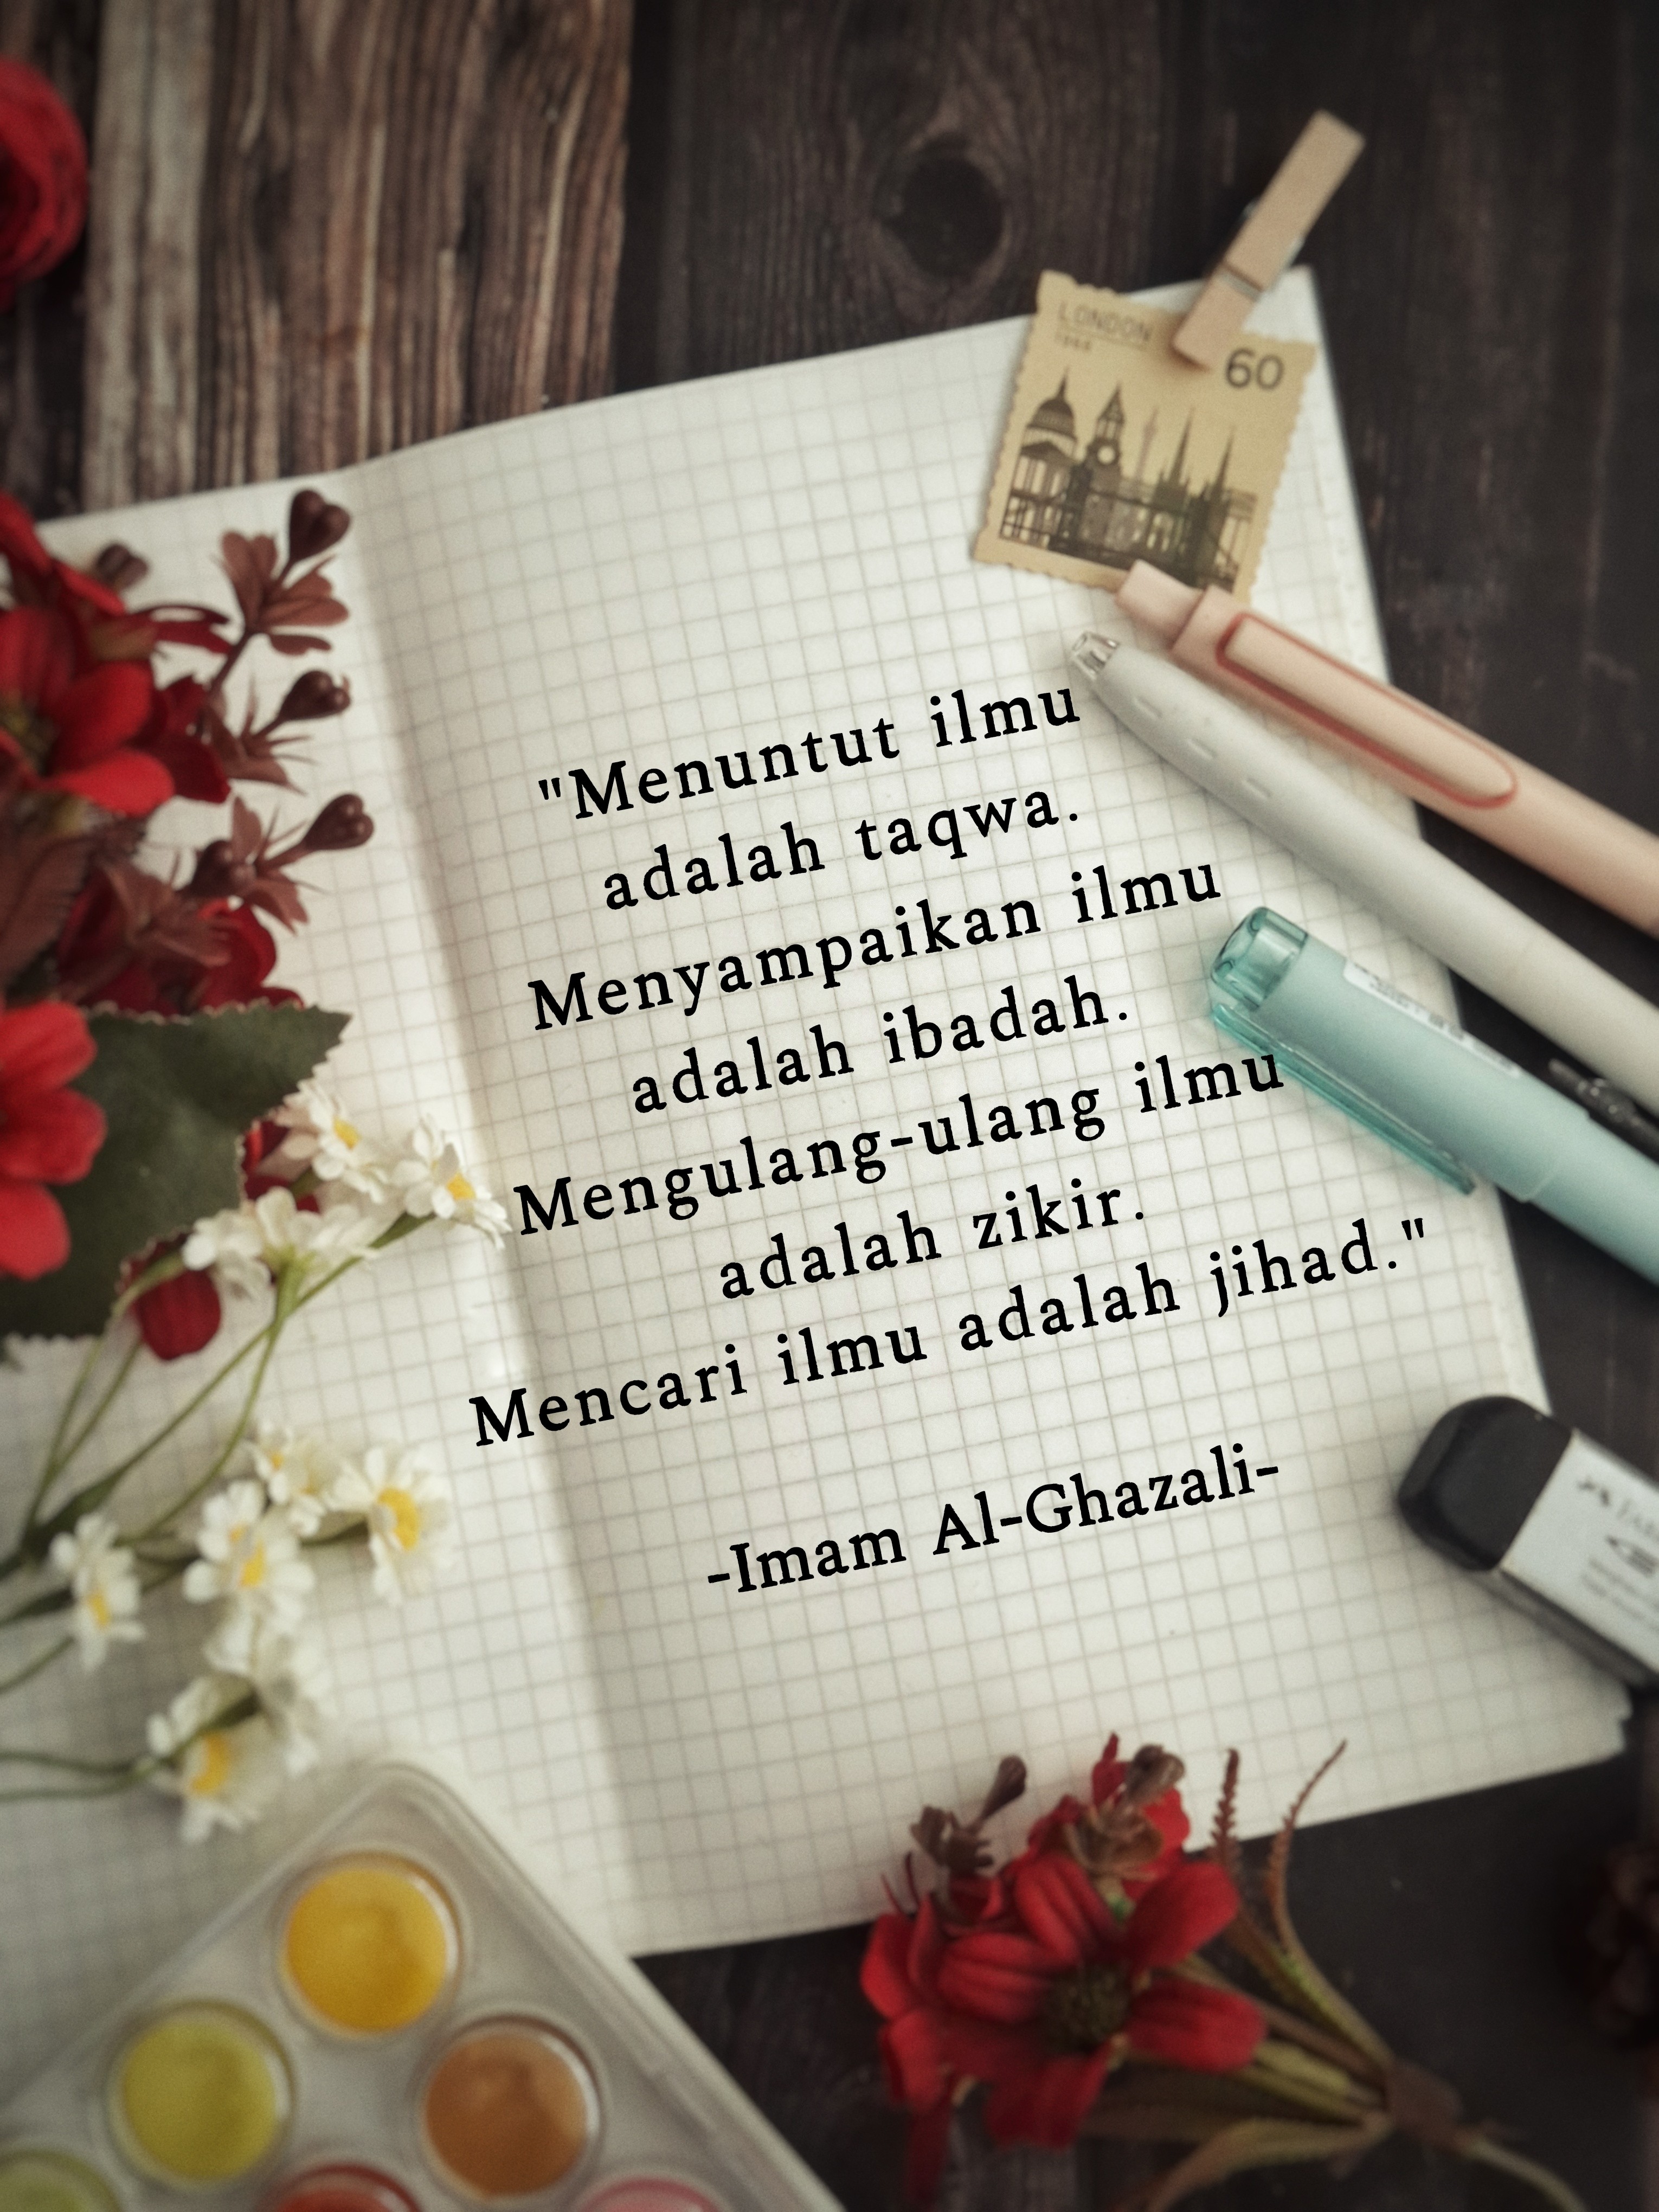 LONDON
60
"Menuntut ilmu
adalah taqwa.
Menyampaikan ilmu
adalah ibadah.
Mengulang-ulang ilmu
adalah zikir.
Mencari ilmu adalah jihad."
-Imam Al-Ghazali-